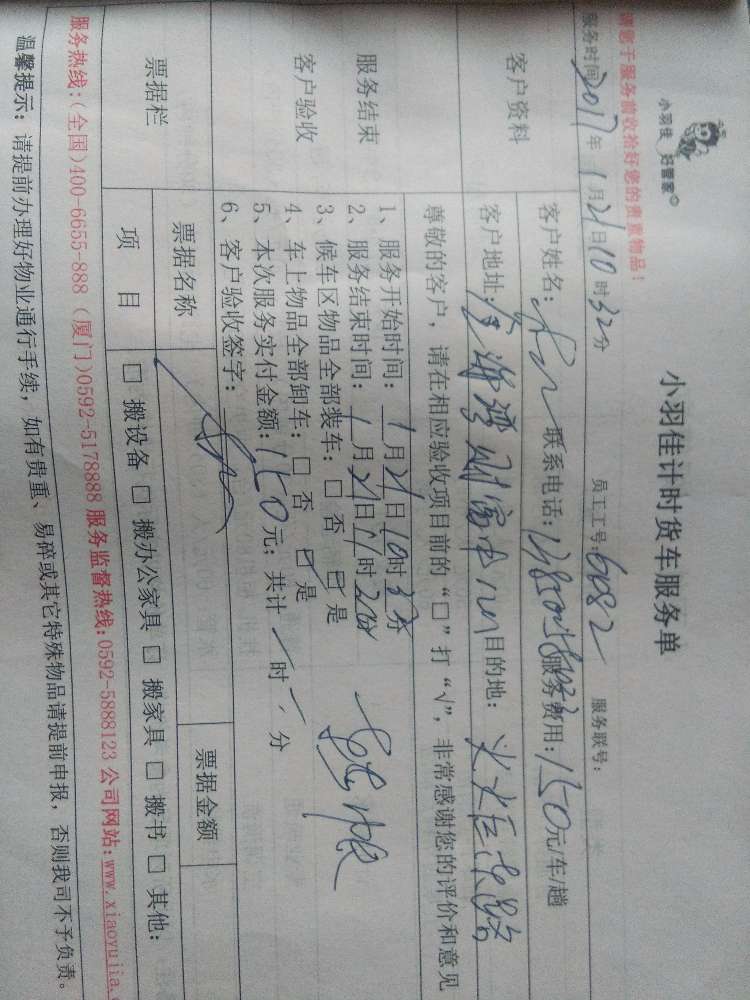 小羽佳 好管家©
小羽佳计时货车服务单
请您于服务前收拾好您的贵重物品！
服务时间 2017年1月21日10时32分 员工工号:6082 服务联号:
客户资料
客户姓名: 联系电话: 服务费用:150元/车/趟
客户地址: 财富中 目的地:
尊敬的客户，请在相应验收项目前的“□”打“√”，非常感谢您的评价和意见
服务结束
客户验收
1、服务开始时间: 1月21日10时 分
2、服务结束时间: 1月21日11时 分
3、候车区物品全部装车: □ 否 ☑ 是
4、车上物品全部卸车: □ 否 ☑ 是
5、本次服务实付金额:150元; 共计 时 分
6、客户验收签字:
票据栏
票据名称 票据金额
项 目 □ 搬设备 □ 搬办公家具 □ 搬家具 □ 搬书 □ 其他:
服务热线:(全国)400-6655-888 (厦门)0592-5178888 服务监督热线:0592-5888123 公司网站:www.xiaoyujia.
温馨提示: 请提前办理好物业通行手续，如有贵重、易碎或其它特殊物品请提前申报，否则我司不予负责。